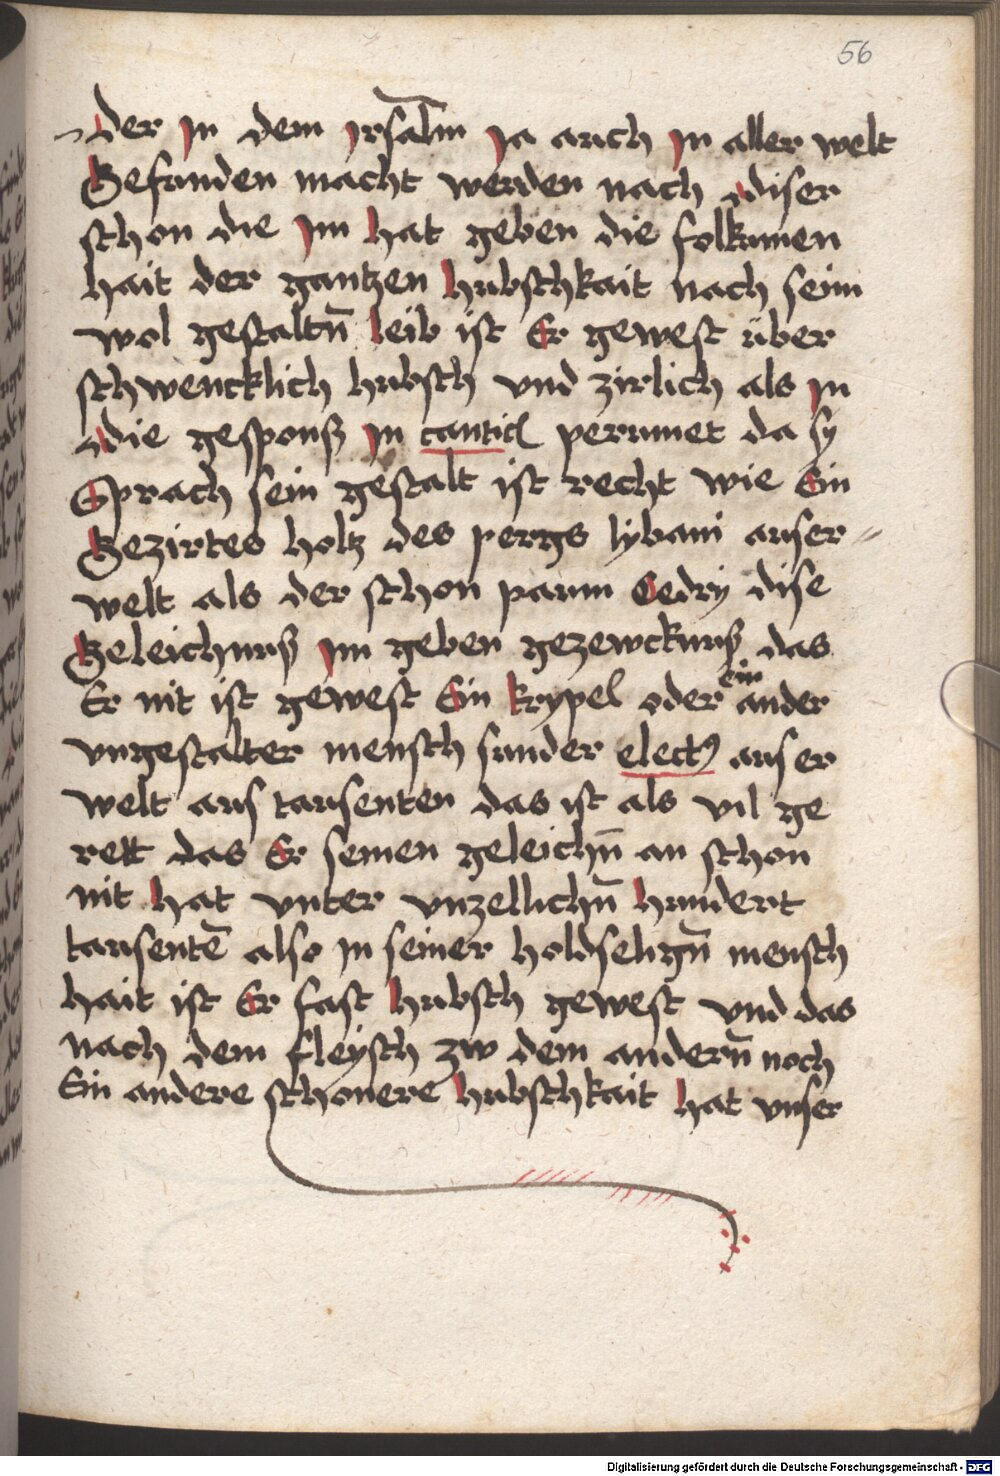 56
der jn dem jrsalm ja auch jn aller welt
Gefunden macht werden nach diser
schon die jm hat geben die folkumen
hait der gantzen hubschkait nach seim
wol gestaltn̄ leib ist Er gewest über
schwencklich hubsch vnd zirlich als jn
die gesponß jn cantic perumet da sy
Sprach sein gestalt ist recht wie Ein
Gezirtes holtz des pergs lybani auser
welt als der schon paum Cedry dise
Geleichnuß jm geben gezewcknuß das
Er nit ist gewest Ein krypel oder ein ander
vngestalter mensch sunder elect9 auser
welt aus tausenten das ist als vil ge
rett das Er seinen geleichn̄ an schon
nit hat vnter vnzellichn̄ hundert
tausentē also jn seiner holdselign̄ mensch
hait ist Er fast hubsch gewest vnd das
nach dem fleysch zw dem andern̄ noch
Ein andere schonere hubschkait hat vnser
Digitalisierung gefördert durch die Deutsche Forschungsgemeinschaft - DFG